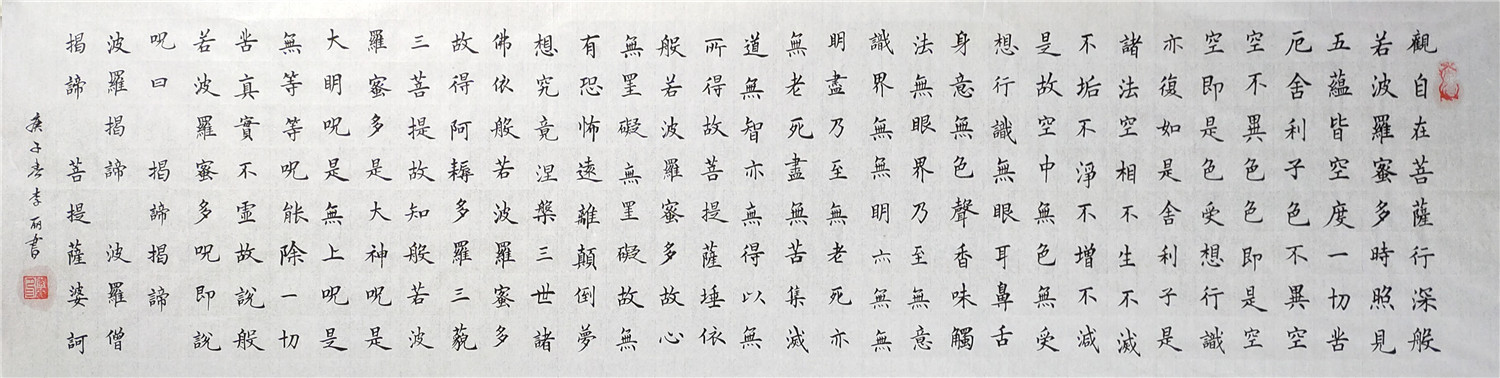 觀自在菩薩行深般
若波羅蜜多時照見
五蘊皆空度一切苦
厄舍利子色不異空
空不異色色即是空
空即是色受想行識
亦復如是舍利子是
諸法空相不生不滅
不垢不淨不增不減
是故空中無色無受
想行識無眼耳鼻舌
身意無色聲香味觸
法無眼界乃至無意
識界無無明六無無
明盡乃至無老死亦
無老死盡無苦集滅
道無智亦無得以無
所得故菩提薩埵依
般若波羅蜜多故心
無罣礙無罣礙故無
有恐怖遠離顛倒夢
想究竟涅槃三世諸
佛依般若波羅蜜多
故得阿耨多羅三藐
三菩提故知般若波
羅蜜多是大神呪是
大明呪是無上呪是
無等等呪能除一切
苦真實不虛故說般
若波羅蜜多呪即說
呪曰 揭諦揭諦
波羅揭諦 波羅僧
揭諦 菩提薩婆訶
庚子春李丽書